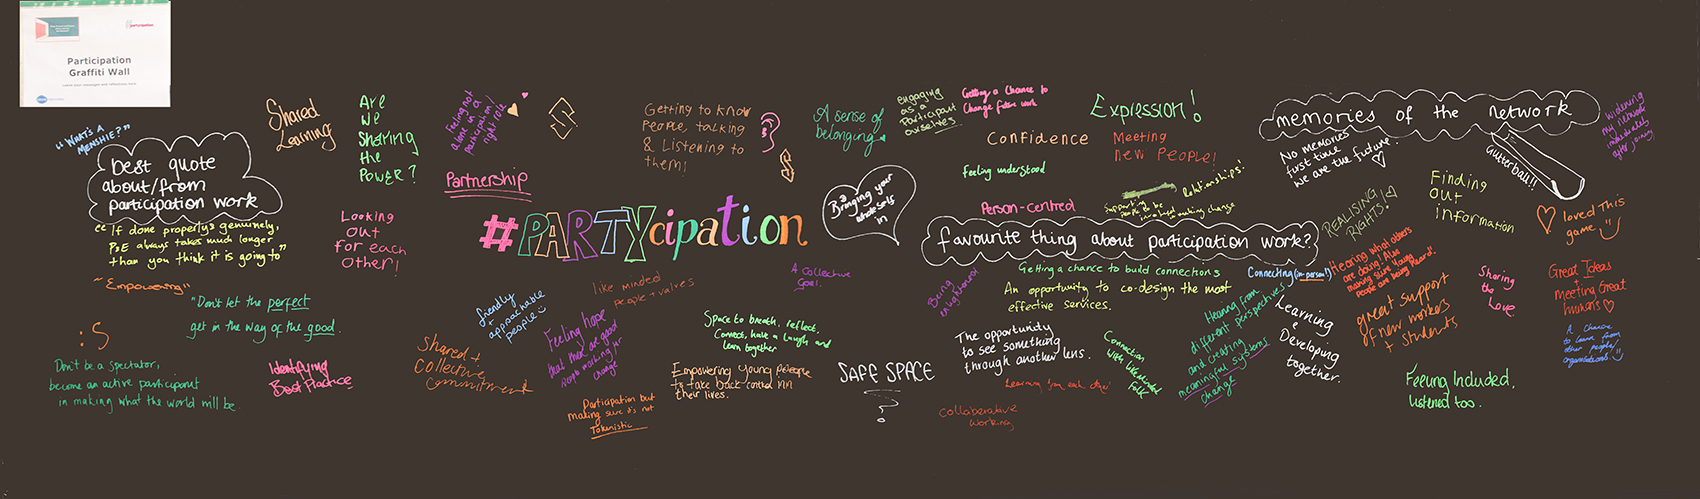 participation
Participation
Graffiti Wall
Leave your messages and reflections here
"WHAT'S A
MENSHIE?"
best quote
about/from
participation work
"If done properly & genuinely,
P&E always takes much longer
than you think it is going to"
~"Empowering"
:S
"Don't let the perfect
get in the way of the good.
Don't be a spectator,
become an active participant
in making what the world will be.
Shared
Learning
Are
we
sharing
the
POWER?
Looking
out
for each
other!
Identifying
Best Practice
Feeling not
alone in a
participation/
rights role
Partnership
#PARTYcipation
Shared +
Collective
Commitment
friendly
+
approachable
people
Feeling hope
that there are good
people working for
change
like minded
people + values
Participation but
making sure it's not
Tokenistic
Getting to know
people, talking
& Listening to
them!
Space to breath, reflect,
connect, have a laugh and
learn together
Empowering Young People
to take back control in
their lives.
A Collective
Goal.
A sense of
belonging
Bringing your
whole selfs
in
SAFE SPACE
?
engaging
as a
Participant
ourselves
Getting a chance to
Change future work
Confidence
Feeling understood
Person-centred
Expression!
Meeting
new People!
Relationships!
Supporting
people to be
involved making change
favourite thing about participation work?
Being
enlightened
Getting a chance to build connections
An opportunity to co-design the most
effective services.
The opportunity
to see something
through another lens.
Learning from each other
Collaborative
working
Connection
with likeminded
folk
Hearing from
different perspectives
and creating
meaningful systems
change
Connecting (in-person!)
Learning
&
Developing
together.
memories of the network
No memories
first time
we are the future.
Gutterball!!
widening
my network
immediately
after joining
REALISING
RIGHTS!
Finding
out
information
"Hearing what others
are doing! Also
making sure young
people are being heard".
great support
of new workers
+ students
Sharing
the
Love
loved This
game.
Great Ideas
+
meeting Great
humans
A chance
to learn from
other people/
organisations
Feeling Included,
listened too.